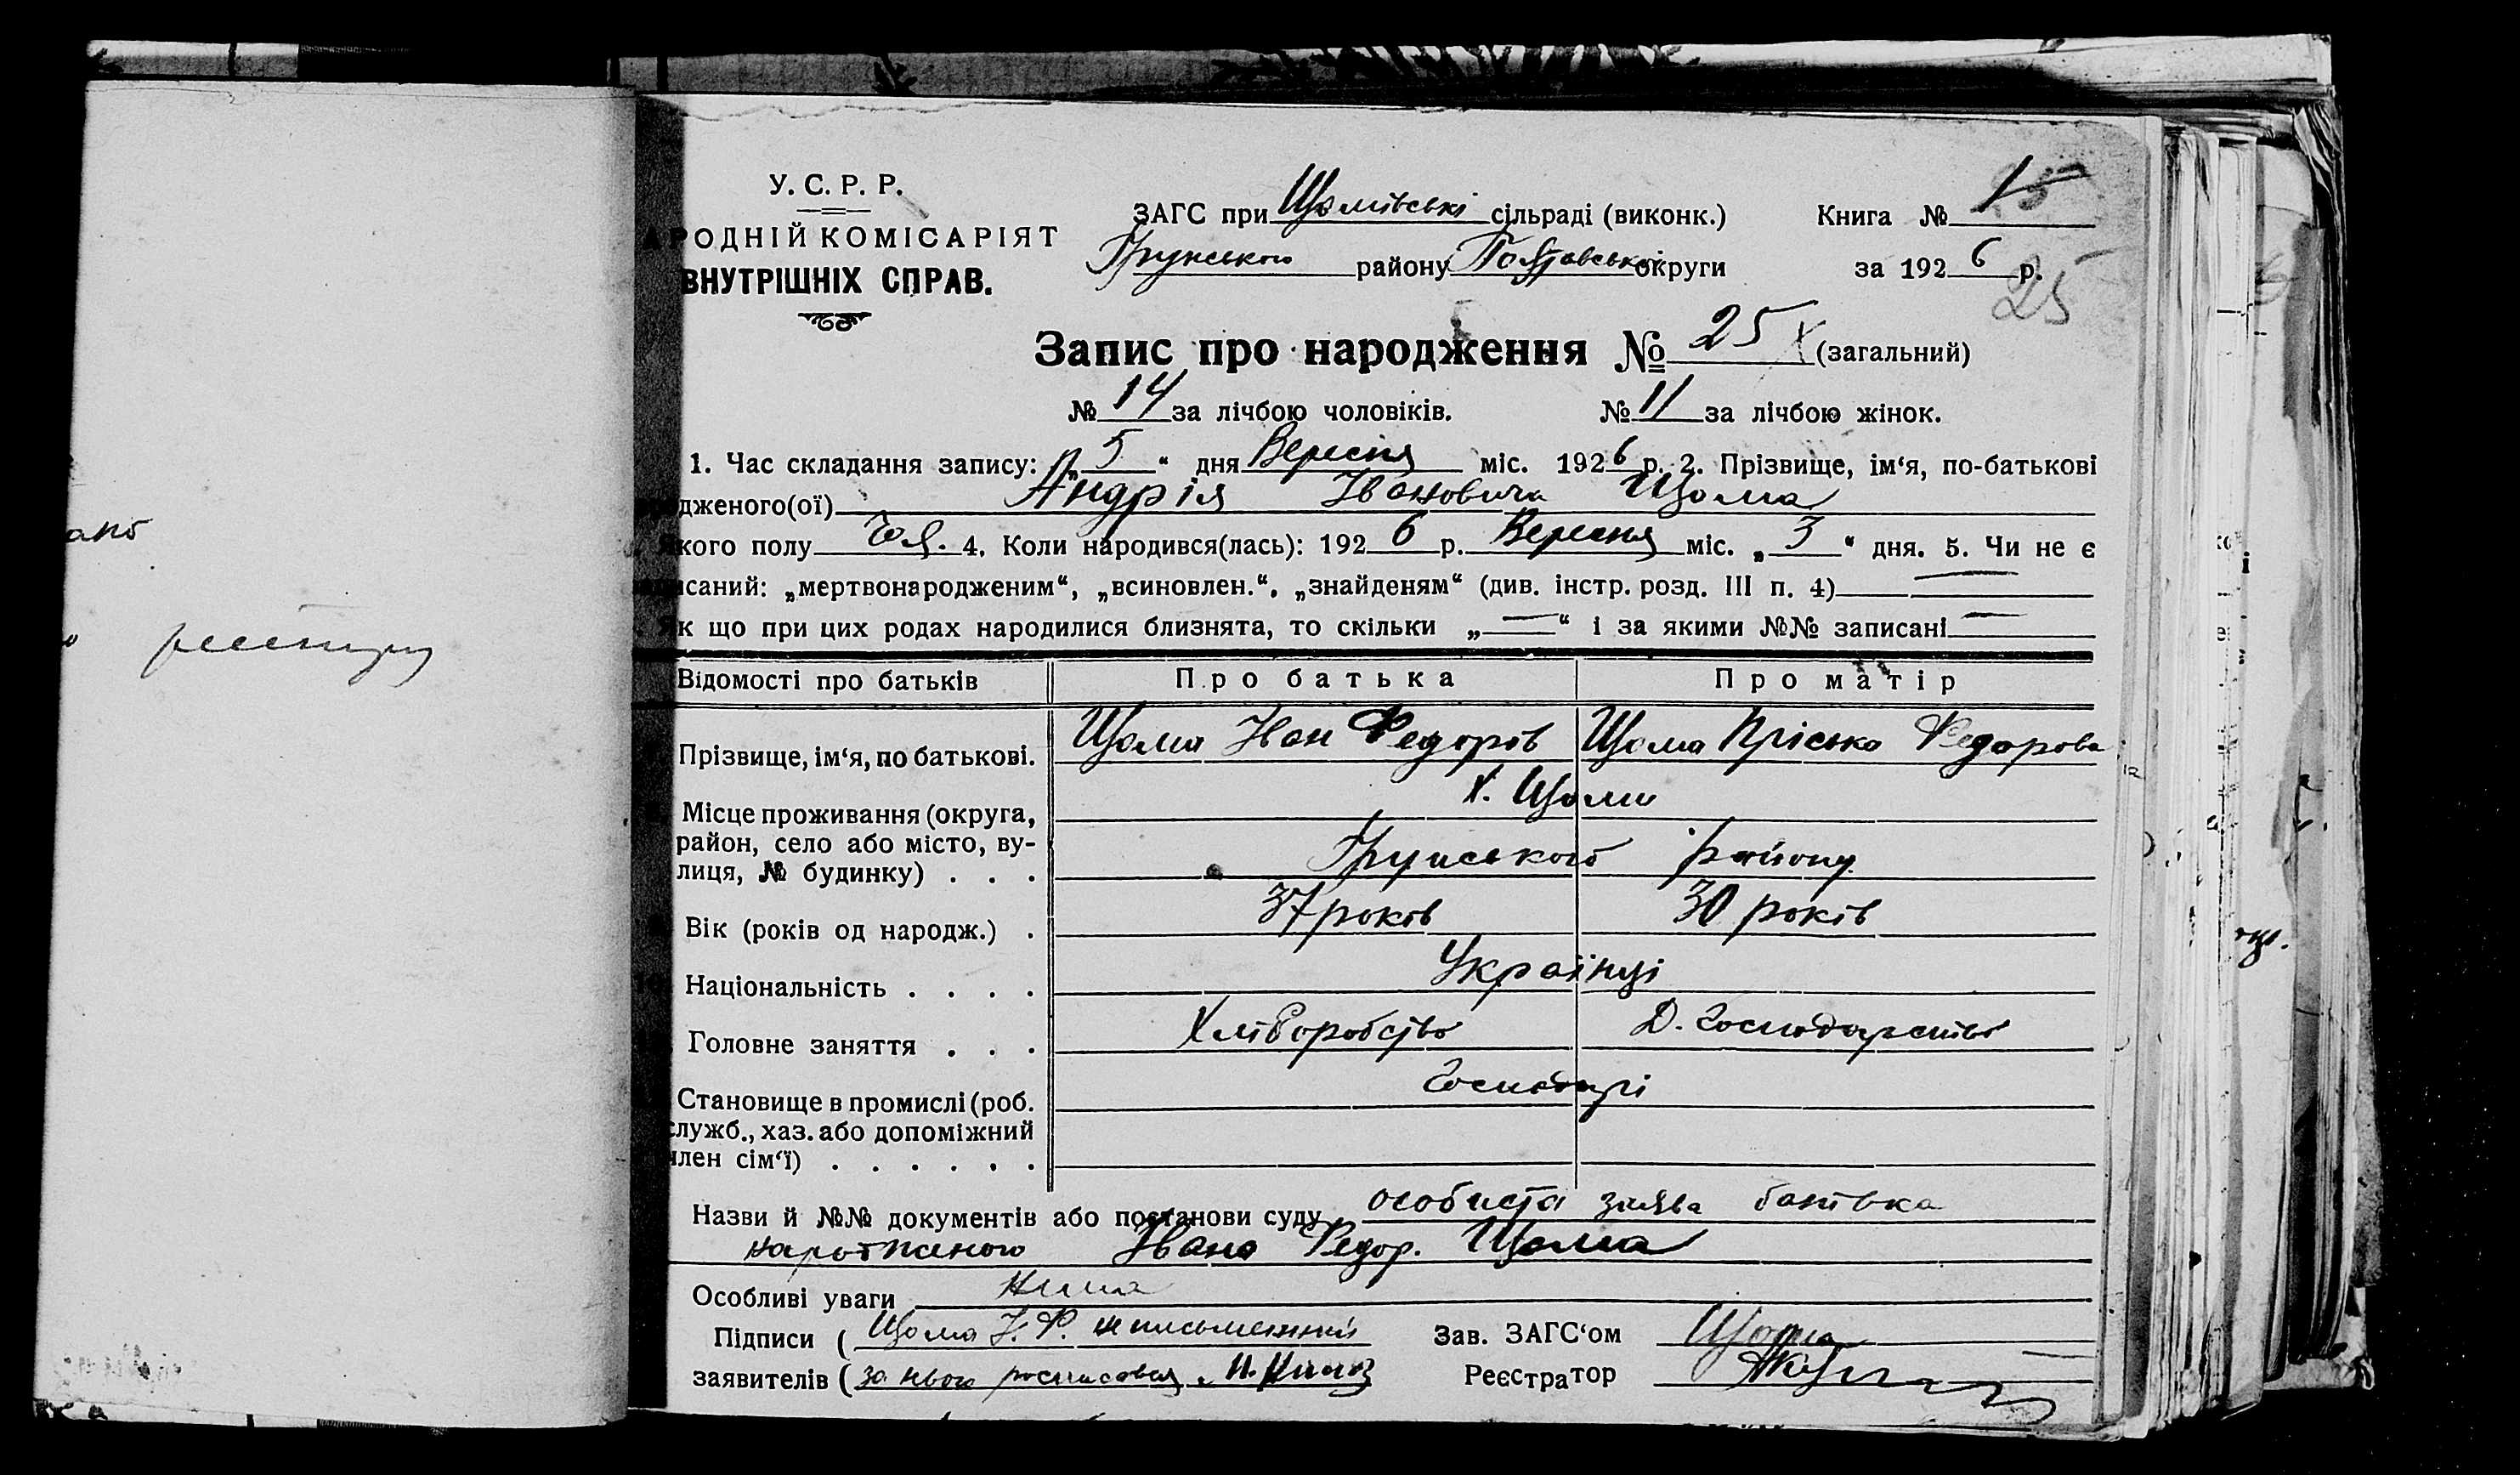 У. С. Р. Р.
РОДНІЙ КОМІСАРІЯТ
ВНУТРІШНІХ СПРАВ.
ЗАГС при Щомівські сільраді (виконк.) Книга №
Грунського району Полтавської округи за 1926 р.
25
Запис про народження № 25 (загальний)
№ 14 за лічбою чоловіків. № 11 за лічбою жінок.
1. Час складання запису: „5“ дня Вересня міс. 1926 р. 2. Прізвище, ім‘я, по-батькові
дженого(ої) Андрія Івановича Щома
якого полу Чол. 4. Коли народився(лась): 1926 р. Вересня міс. „3“ дня. 5. Чи не є
саний: „мертвонародженим“, „всиновлен.“, „знайденям“ (див. інстр. розд. III п. 4) —
Як що при цих родах народилися близнята, то скільки „—“ і за якими №№ записані —
Відомості про батьків Про батька Про матір
Прізвище, ім‘я, по батькові. Щома Іван Федоров Щома Пріська Федорова
Місце проживання (округа, х. Щоми
район, село або місто, ву-
лиця, № будинку) . . . Грунського району
Вік (років од народж.) . 37 років 30 років
Національність . . . . Українці
Головне заняття . . . Хліборобство Д. Господарство
Становище в промислі (роб. Господарі
служб., хаз. або допоміжний
член сім‘ї) . . . . . .
Назви й №№ документів або постанови суду особиста заява батька
Івана Федор. Щома
Особливі уваги Нима
Підписи ( Щома І. Ф. неписьменний Зав. ЗАГС‘ом Щома
заявителів ( за нього росписався Реєстратор
реєстру